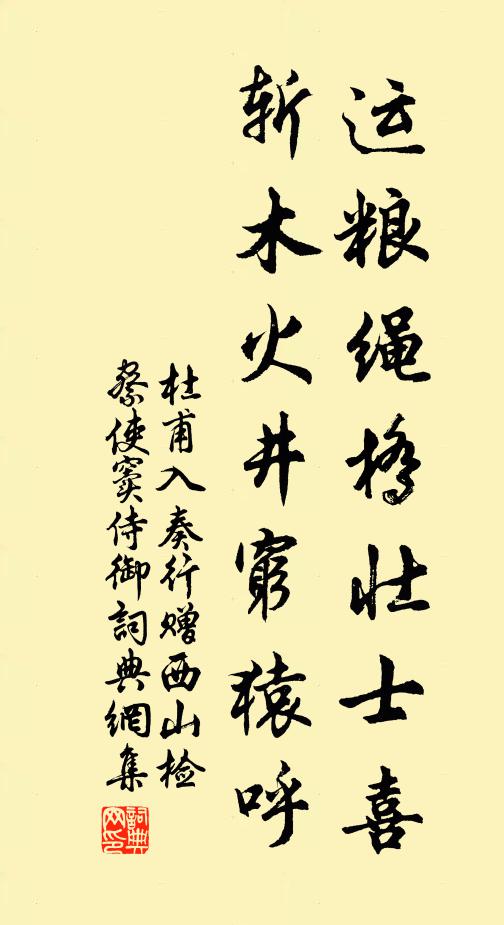 运粮绳桥壮士喜
斩木火井穷猿呼
杜甫入奏行赠西山检
察使窦侍御词典網集
詞典
网印